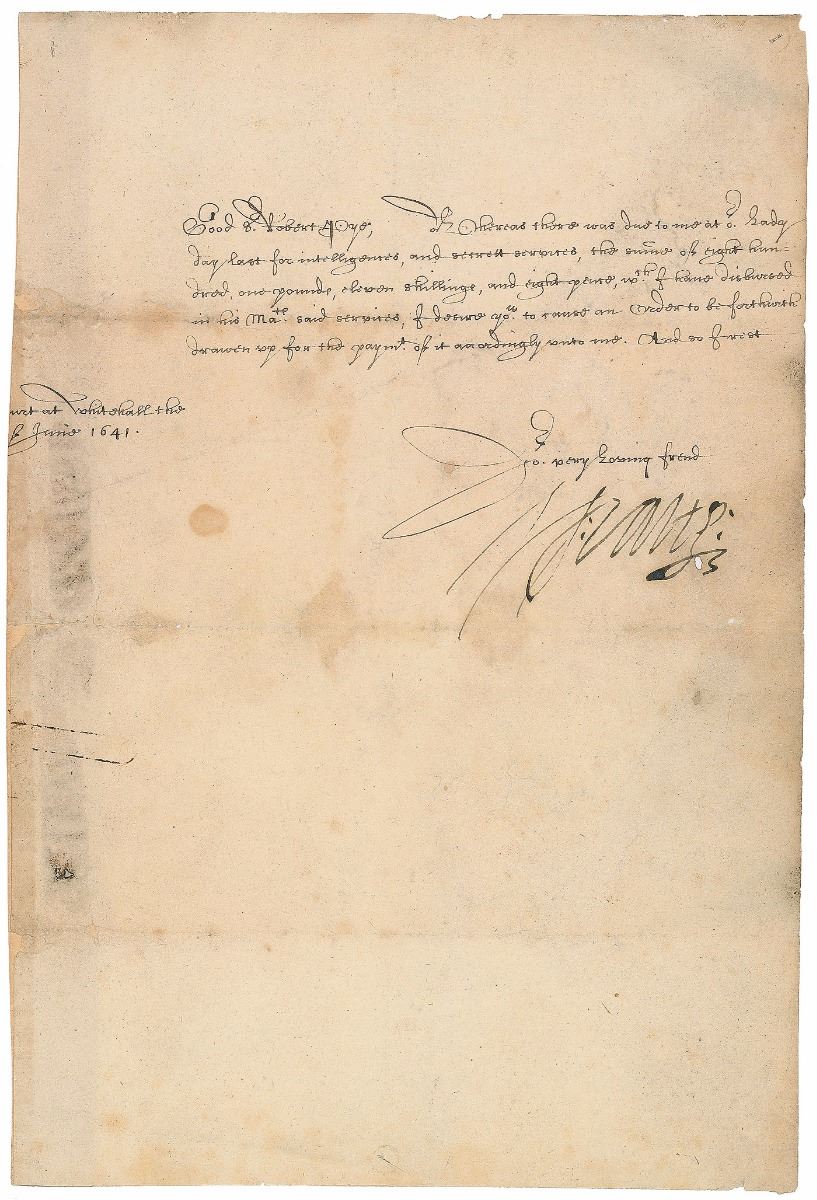 Good Sr. Robert Pye, Whereas there was due to me at or. Lady
day last for intelligences, and secrett services, the sume of eight hun=
dred, one pounde, eleven shillings, and eight pence, wch. I have disbursed
in his Mats. said services, I desire you. to cause an Order to be forthwth
drawen up for the paymt. of it accordingly unto me. And so I rest
urt at Whitehall the
June 1641.
Yor. very Loving frend
H: Vane.